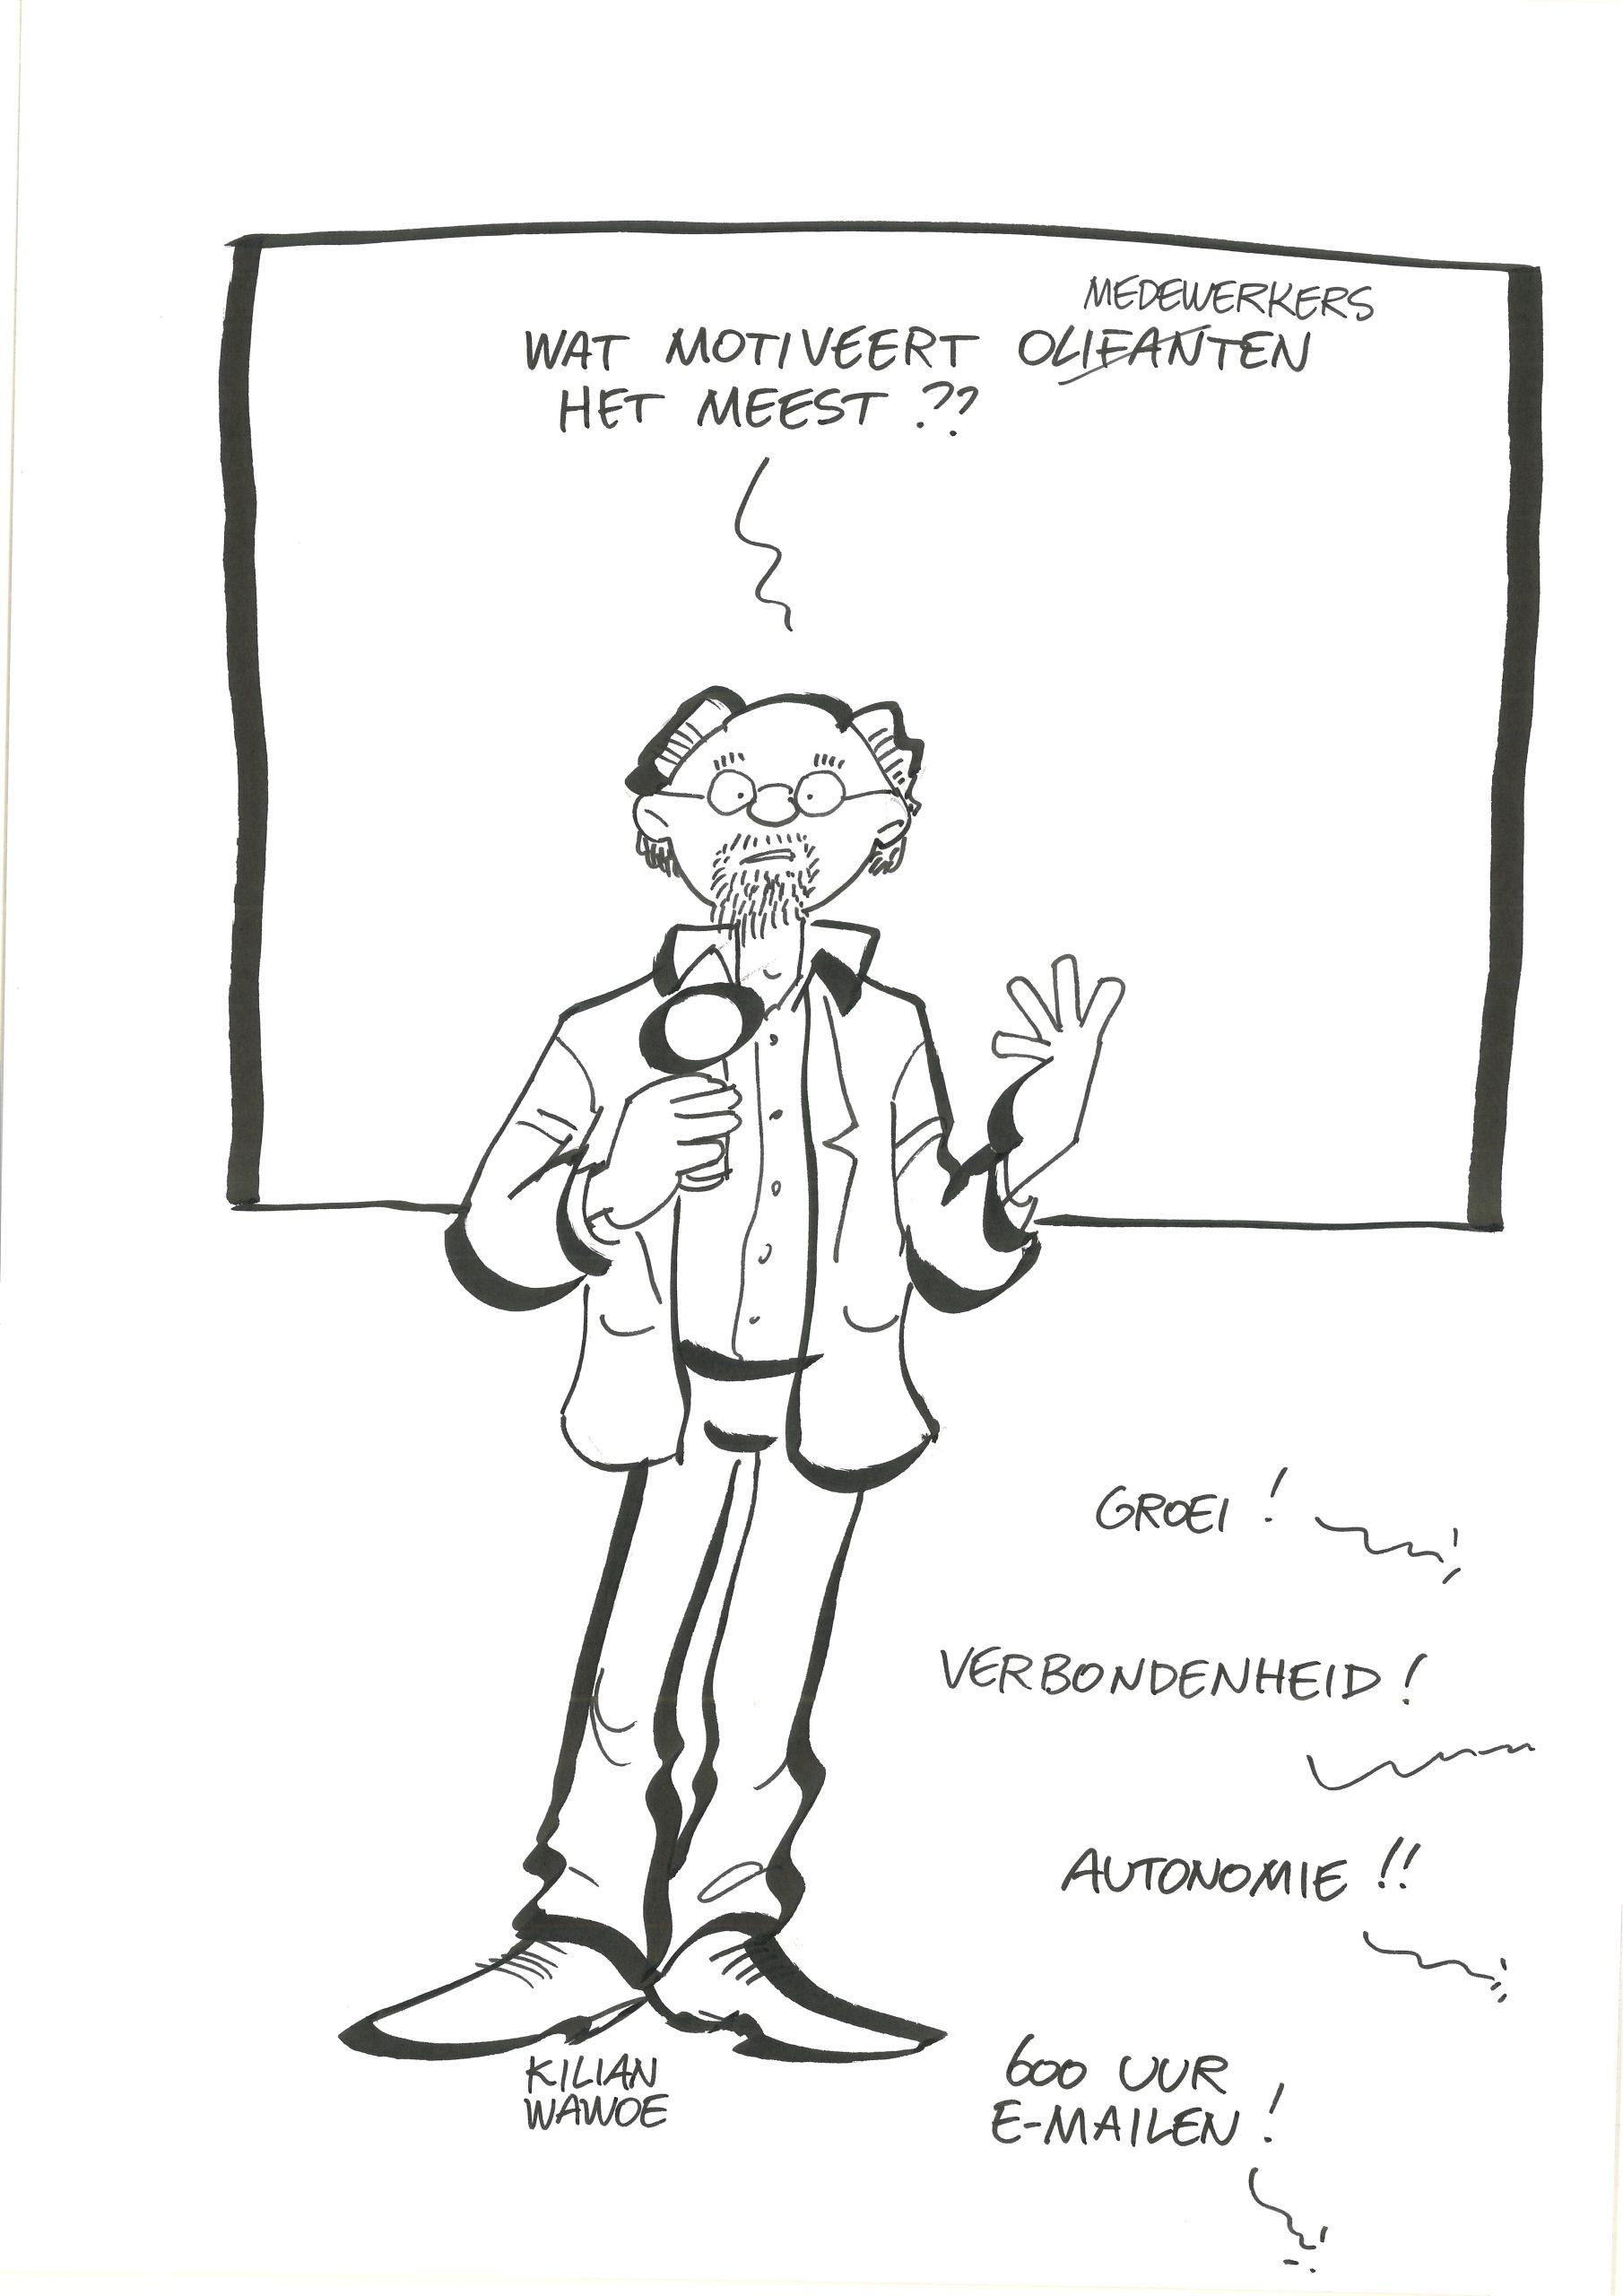 MEDEWERKERS
WAT MOTIVEERT OLIFANTEN
HET MEEST ??
GROEI !
VERBONDENHEID !
AUTONOMIE !!
600 UUR
E-MAILEN !
KILIAN
WAWOE